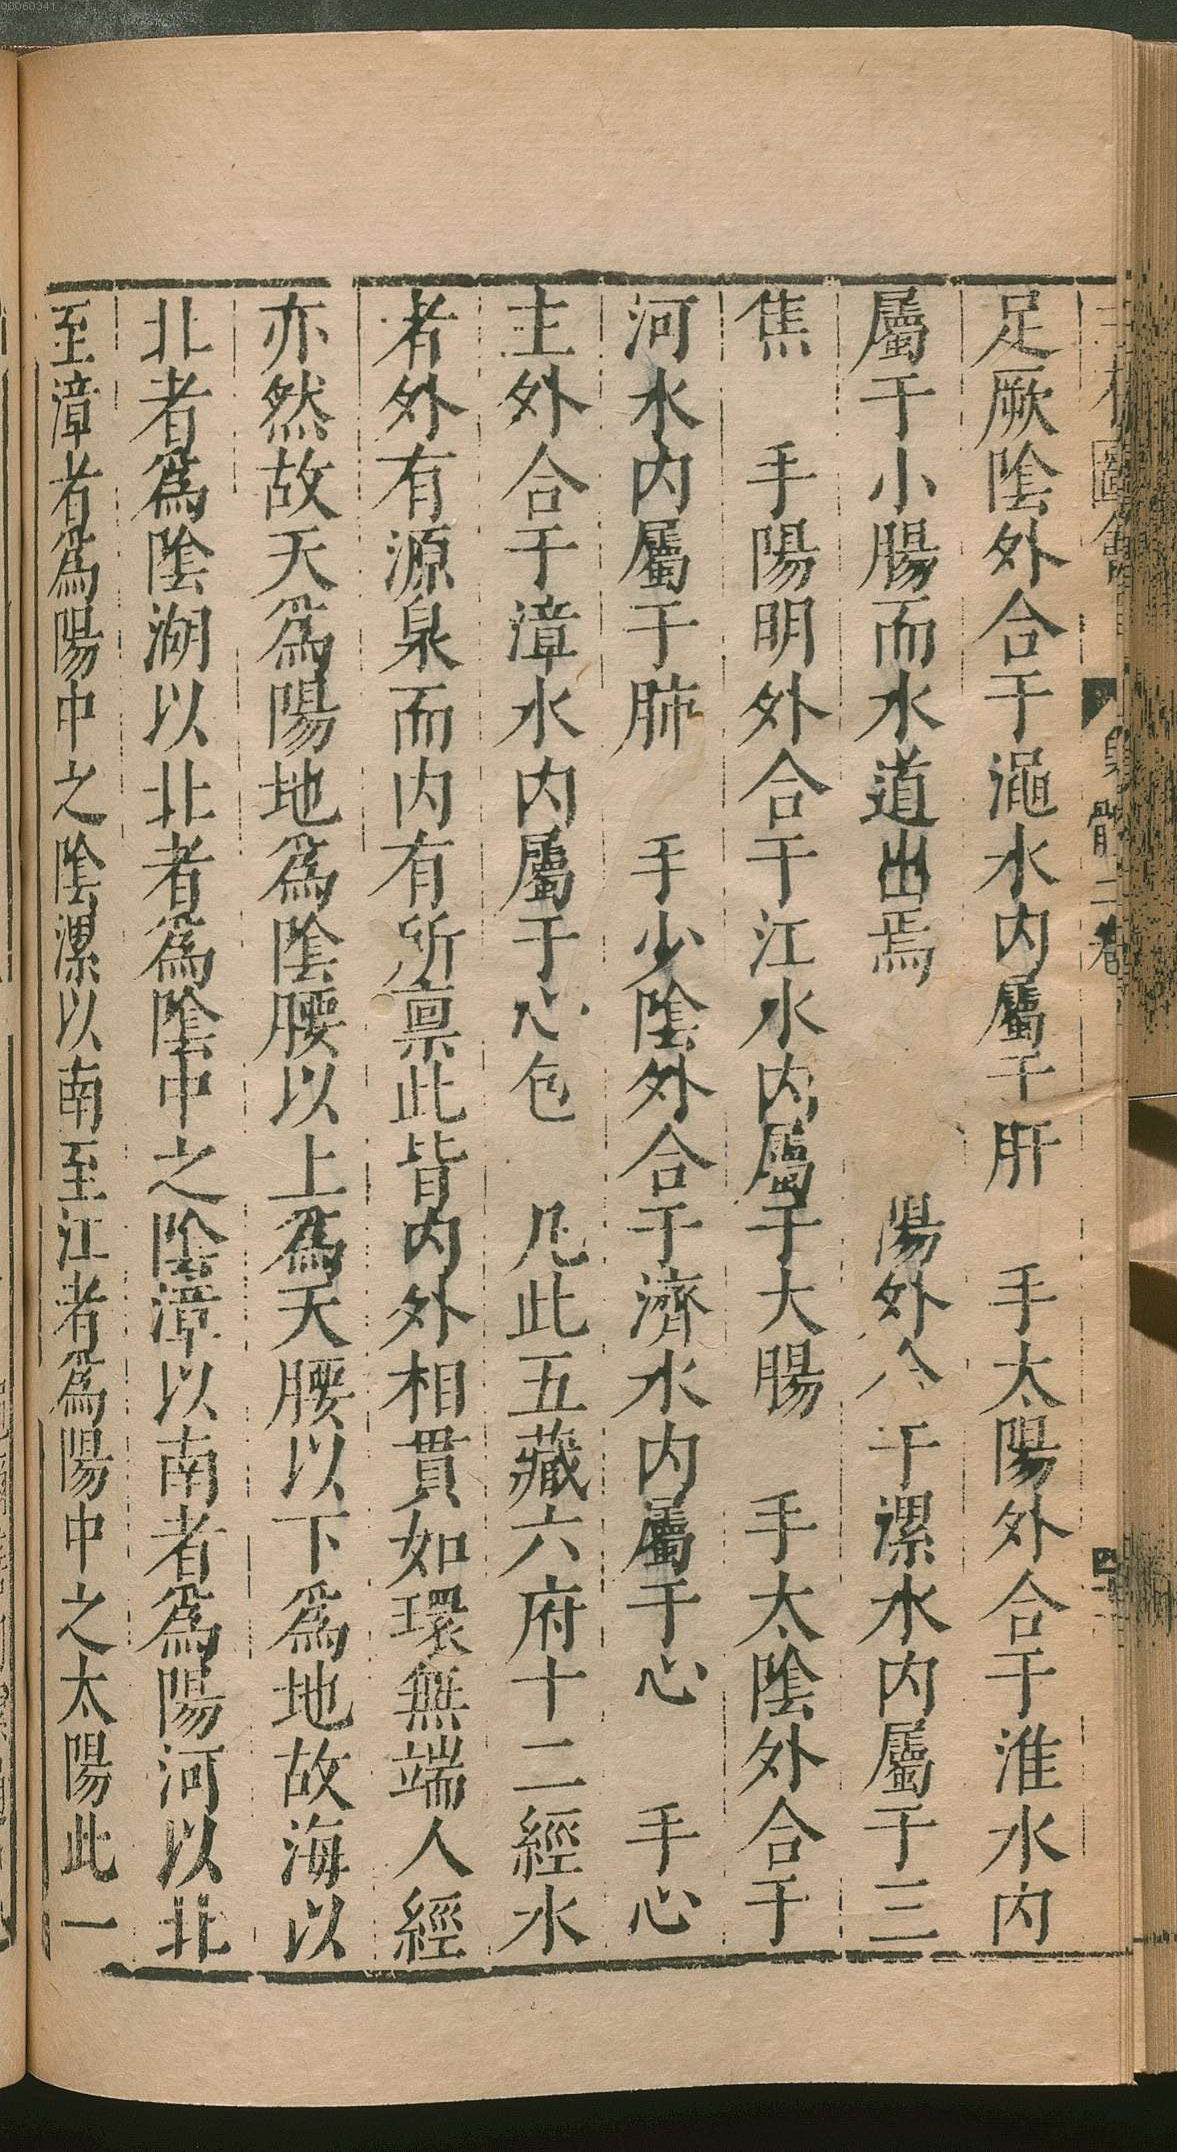 00060341
三才圖會 身體二卷
足厥陰外合于澠水内屬于肝 手太陽外合于淮水内
屬于小腸而水道出焉 陽外合于漯水内屬于三
焦 手陽明外合于江水内屬于大腸 手太陰外合于
河水内屬于肺 手少陰外合于濟水内屬于心 手心
主外合于漳水内屬于心包 凡此五藏六府十二經水
者外有源泉而内有所禀此皆内外相貫如環無端人經
亦然故天爲陽地爲陰腰以上爲天腰以下爲地故海以
北者爲陰湖以北者爲陰中之陰漳以南者爲陽河以北
至漳者爲陽中之陰漯以南至江者爲陽中之太陽此一